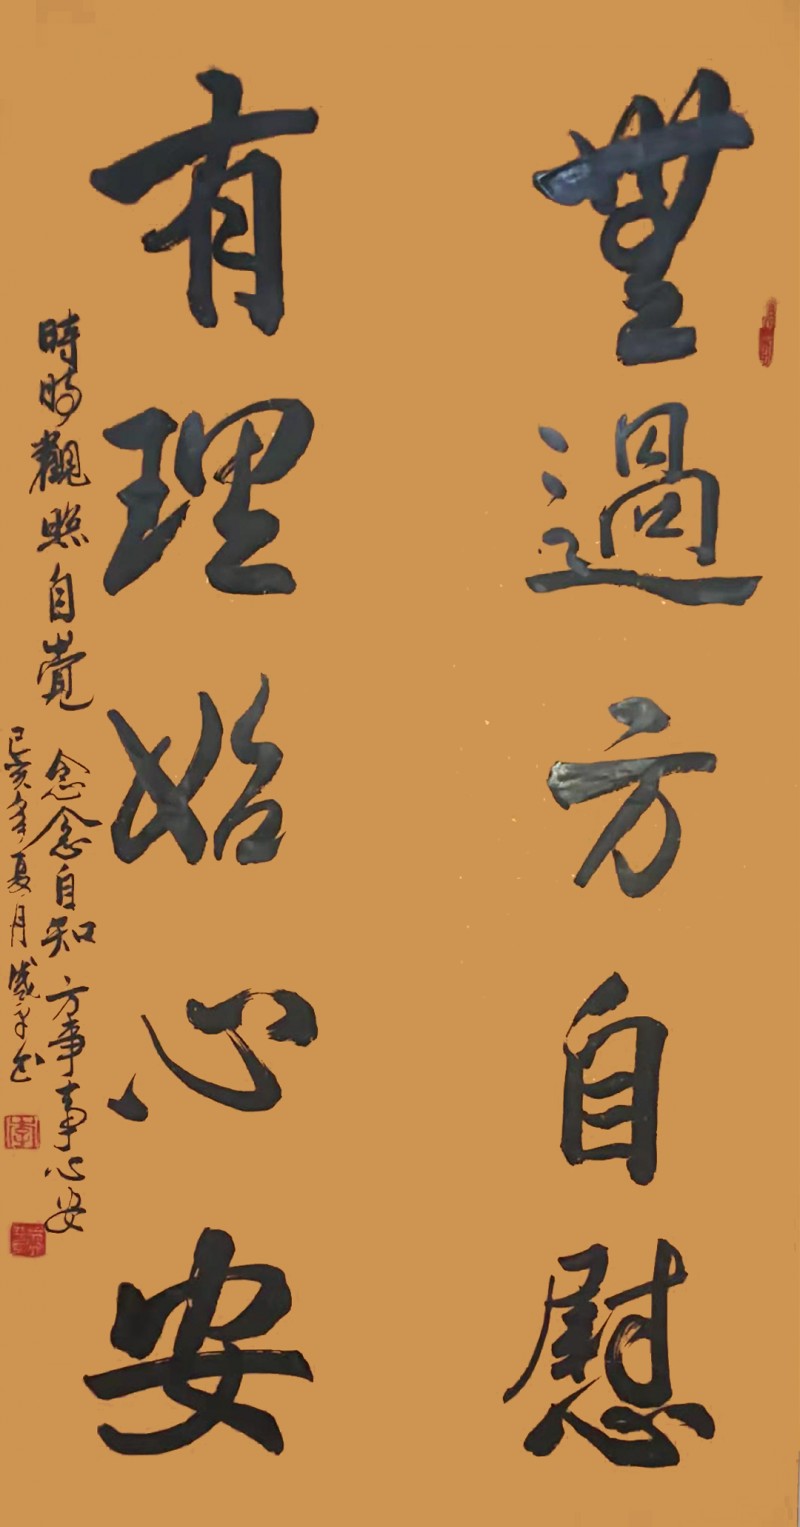 無過方自慰
有理始心安
時時觀照自覺 念念自知 方事事心安
己亥年夏月